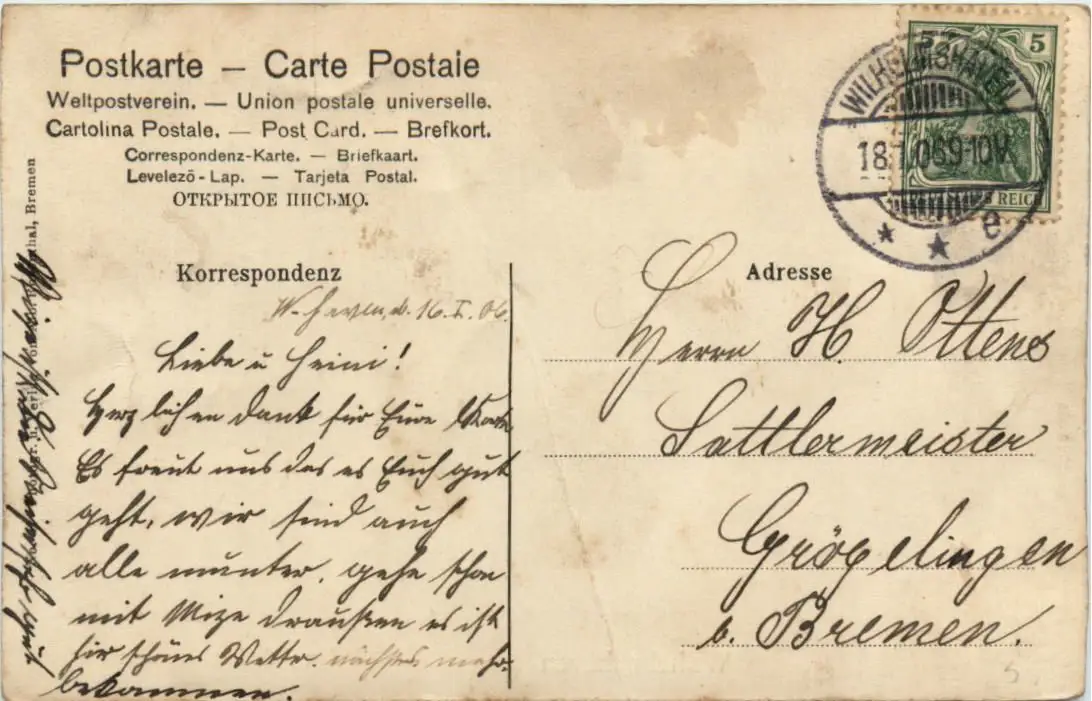 Postkarte – Carte Postale
Weltpostverein. — Union postale universelle.
Cartolina Postale. — Post Card. — Brefkort.
Correspondenz-Karte. — Briefkaart.
Levelezö-Lap. — Tarjeta Postal.
ОТКРЫТОЕ ПИСЬМО.
5 5
REICH
WILHELMSHAVEN
18. 06 9-10V.
* * e
Bremen
Korrespondenz
W-haven, d. 16. I. 06.
Liebe u Heini!
Herzlichen Dank für Eure Karte
Es freut uns das es Euch gut
geht, wir sind auch
alle munter. gehe schon
mit Mize draußen es ist
hir schönes Wetter. nächstes mehr
bekommen.
Adresse
Herrn H. Ottens
Sattlermeister
Gröpelingen
b. Bremen.